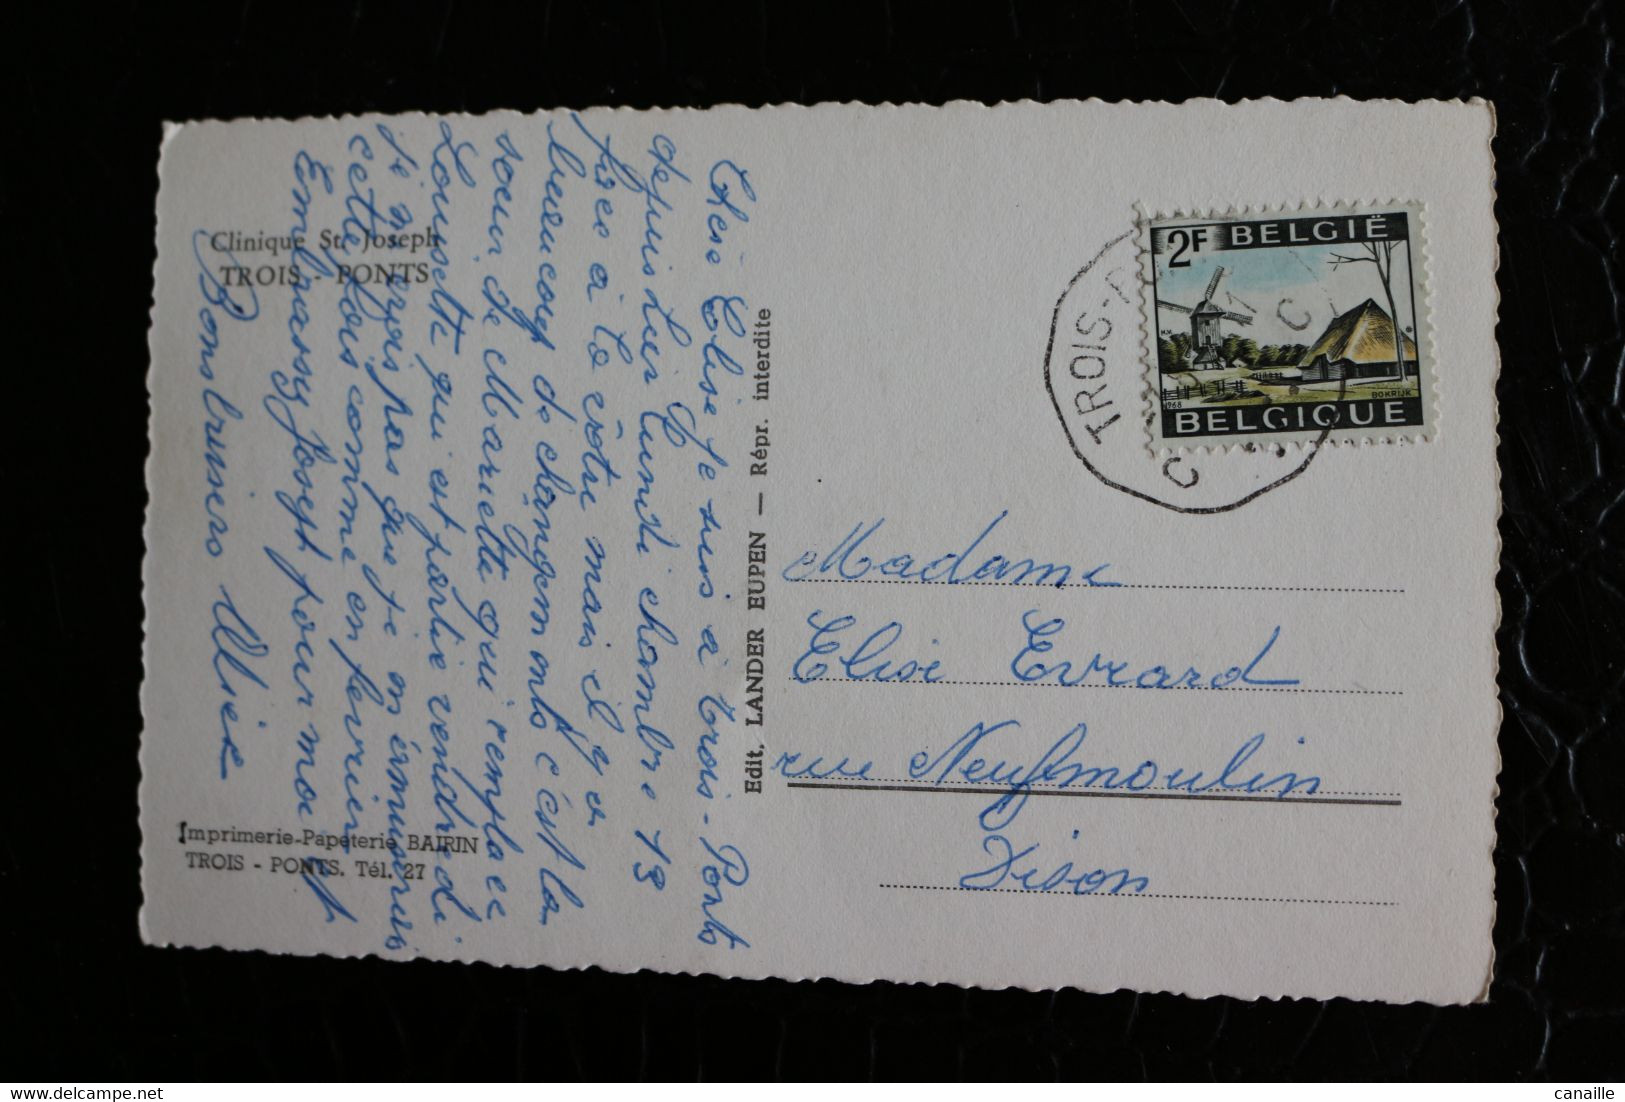 Clinique St. Joseph
TROIS - PONTS
Chère Elise je suis à trois-Ponts
depuis hier lundi chambre 13
face à la vôtre mais il y a
beaucoup de changements c'est la
soeur de Mariette qui remplace
Lousette qui est partie vendredi
je ne crois pas que je m'ennuierais
cette fois comme en fevrier
Embrassez Joseph pour moi et
Bons baisers
Imprimerie-Papeterie BAIRIN
TROIS - PONTS. Tél. 27
Edit. LANDER EUPEN — Répr. interdite
2F BELGIË
H.V.
1968
BOKRIJK
BELGIQUE
TROIS-P
C
C
Madame
Elise Evrard
rue Neufmoulin
Dison
canaille